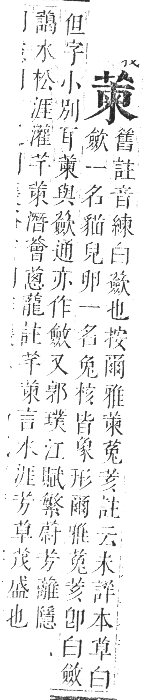 萰
舊註音練白歛也按爾雅萰菟荄註云未詳本草白
歛一名貓兒卵一名兔核皆象形爾雅菟荄卽白斂
但字小別耳萰與歛通亦作斂又郭璞江賦繁蔚芳離隱
藹水松涯灌芊萰潛薈葱蘢註芊萰言水涯芳草茂盛也